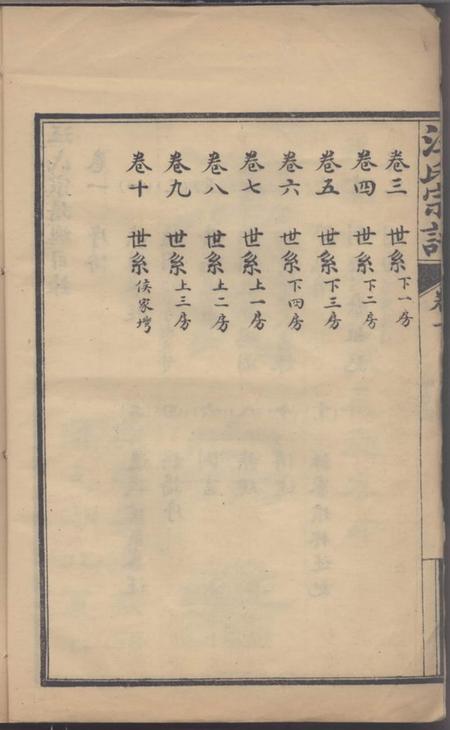 汪氏宗譜
卷一
卷三 世系 下一房
卷四 世系 下二房
卷五 世系 下三房
卷六 世系 下四房
卷七 世系 上一房
卷八 世系 上二房
卷九 世系 上三房
卷十 世系 侯家灣